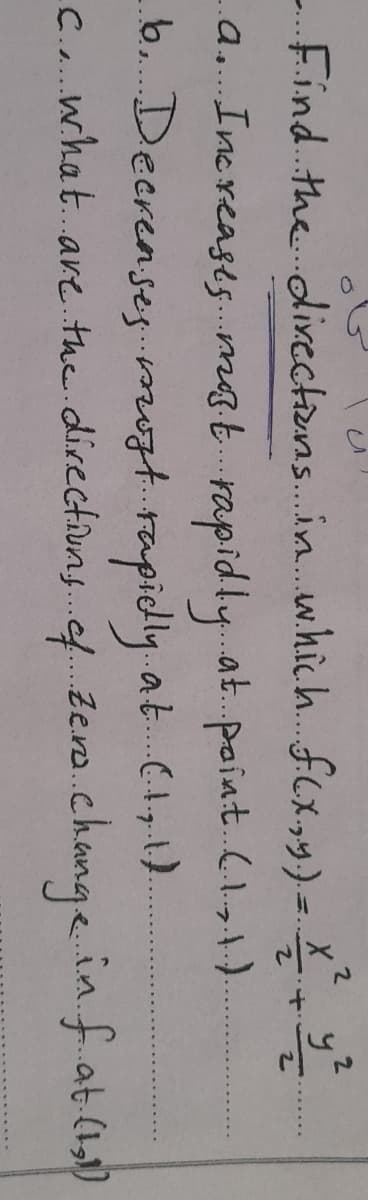 Find the directions in which f(x,y) = x²/2 + y²/2
a. Increases most rapidly at point (1,1)
b. Decreases most rapidly at (1,1)
c. what are the directions of zero change in f at (1,1)